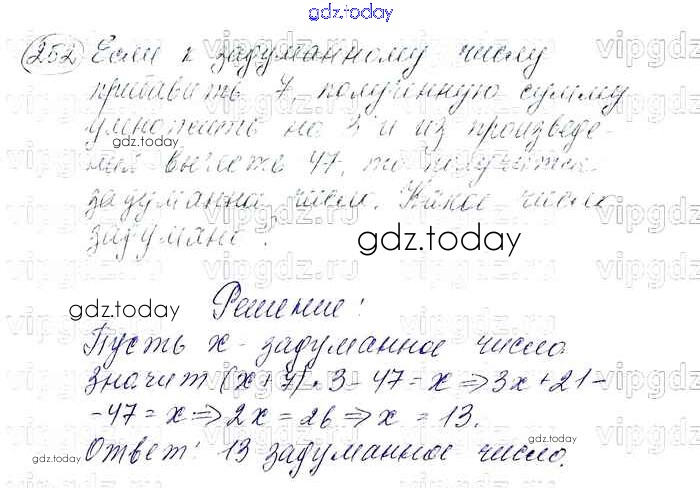 gdz.today
252 Если к задуманному числу
прибавить 7, полученную сумму
умножить на 3 и из произведе-
ния вычесть 47, то получится
задуманное число. Какое число
задумано?
gdz.today
gdz.today Решение:
Пусть x - задуманное число.
Значит (x+7)·3-47=x⇒3x+21-
-47=x⇒2x=26⇒x=13.
Ответ: 13 задуманное число.
gdz.today
gdz.today